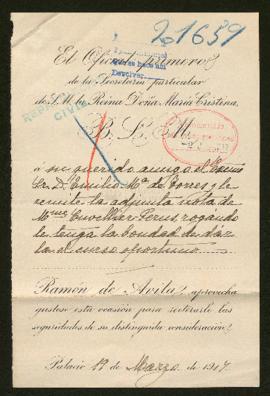 21659
El Oficial primero
de la Secretaría particular
de S.M. la Reina Doña María Cristina,
B. L. M.
á su querido amigo el Excmo
Sr. D. Emilio Mª de Torres, y le
remite la adjunta nota de
Mme Cuvellier rogando
le tenga la bondad de dar
la el curso oportuno
Ramón de Avila, aprovecha
gustoso esta ocasión para reiterarle las
seguridades de su distinguida consideración.
Palacio 17 de Marzo de 1917.